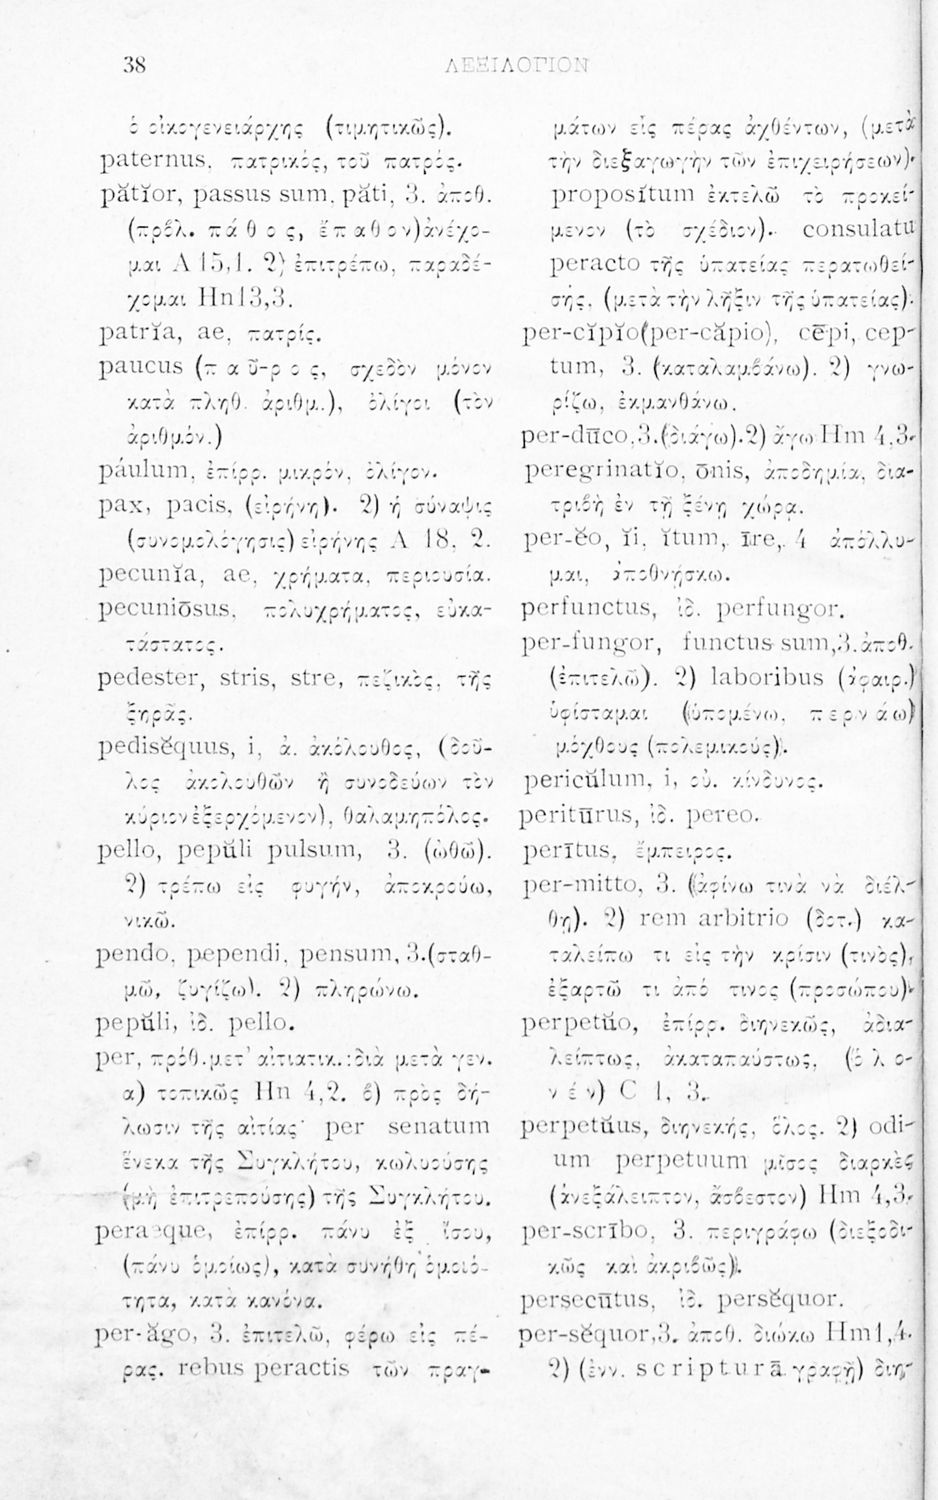 38
ΛΕΞΙΛΟΓΙΟΝ
ὁ οἰκογενειάρχης (τιμητικῶς).
paternus, πατρικός, τοῦ πατρός.
pătĭor, passus sum, păti, 3. ἀποθ.
(πρβλ. πάθος, ἔπαθον) ἀνέχο-
μαι A 15,1. 2) ἐπιτρέπω, παραδέ-
χομαι Hn13,3.
patrĭa, ae, πατρίς.
paucus (παῦ-ρος, σχεδὸν μόνον
κατὰ πληθ. ἀριθμ.), ὀλίγοι (τὸν
ἀριθμόν.)
páulum, ἐπίρρ. μικρόν, ὀλίγον.
pax, pacis, (εἰρήνη). 2) ἡ σύναψις
(συνομολόγησις) εἰρήνης A 18, 2.
pecunĭa, ae, χρήματα, περιουσία.
pecuniōsus, πολυχρήματος, εὐκα-
τάστατος.
pedester, stris, stre, πεζικὸς, τῆς
ξηρᾶς.
pedisĕquus, i, ἀ. ἀκόλουθος, (δοῦ-
λος ἀκολουθῶν ἢ συνοδεύων τὸν
κύριον ἐξερχόμενον), θαλαμηπόλος.
pello, pepŭli pulsum, 3. (ὠθῶ).
2) τρέπω εἰς φυγήν, ἀποκρούω,
νικῶ.
pendo, pependi, pensum, 3.(σταθ-
μῶ, ζυγίζω). 2) πληρώνω.
pepŭli, ἰδ. pello.
per, πρόθ.μετ' αἰτιατικ.:διὰ μετὰ γεν.
α) τοπικῶς Hn 4,2. β) πρὸς δή-
λωσιν τῆς αἰτίας· per senatum
ἕνεκα τῆς Συγκλήτου, κωλυούσης
(μὴ ἐπιτρεπούσης) τῆς Συγκλήτου.
peraeque, ἐπίρρ. πάνυ ἐξ ἴσου,
(πάνυ ὁμοίως), κατὰ συνήθη ὁμοιό-
τητα, κατὰ κανόνα.
per-ăgo, 3. ἐπιτελῶ, φέρω εἰς πέ-
ρας. rebus peractis τῶν πραγ-
μάτων εἰς πέρας ἀχθέντων, (μετὰ
τὴν διεξαγωγὴν τῶν ἐπιχειρήσεων).
proposĭtum ἐκτελῶ τὸ προκεί-
μενον (τὸ σχέδιον). consulatu
peracto τῆς ὑπατείας περατωθεί-
σης, (μετὰ τὴν λῆξιν τῆς ὑπατείας).
per-cĭpĭo(per-căpio), cēpi, cep-
tum, 3. (καταλαμβάνω). 2) γνω-
ρίζω, ἐκμανθάνω.
per-dūco,3.(διάγω).2) ἄγω Hm 4,3.
peregrinatĭo, ōnis, ἀποδημία, δια-
τριβὴ ἐν τῇ ξένῃ χώρᾳ.
per-ĕo, ĭi, ĭtum, īre, 4 ἀπόλλυ-
μαι, ἀποθνήσκω.
perfunctus, ἰδ. perfungor.
per-fungor, functus sum,3.ἀποθ.
(ἐπιτελῶ). 2) laboribus (ἀφαιρ.)
ὑφίσταμαι (ὑπομένω, περνάω)
μόχθους (πολεμικούς).
pericŭlum, i, οὐ. κίνδυνος.
peritūrus, ἰδ. pereo.
perītus, ἔμπειρος.
per-mitto, 3. (ἀφίνω τινὰ νὰ διέλ-
θῃ). 2) rem arbitrio (δοτ.) κα-
ταλείπω τι εἰς τὴν κρίσιν (τινὸς),
ἐξαρτῶ τι ἀπό τινος (προσώπου).
perpetŭo, ἐπίρρ. διηνεκῶς, ἀδια-
λείπτως, ἀκαταπαύστως, (ὁλο-
νέν) C 1, 3.
perpetŭus, διηνεκής, ὅλος. 2) odi-
um perpetuum μῖσος διαρκὲς
(ἀνεξάλειπτον, ἄσβεστον) Hm 4,3.
per-scrībo, 3. περιγράφω (διεξοδι-
κῶς καὶ ἀκριβῶς).
persecūtus, ἰδ. persĕquor.
per-sĕquor,3. ἀποθ. διώκω Hm1,4.
2) (ἐνν. scripturā γραφῇ) διη-